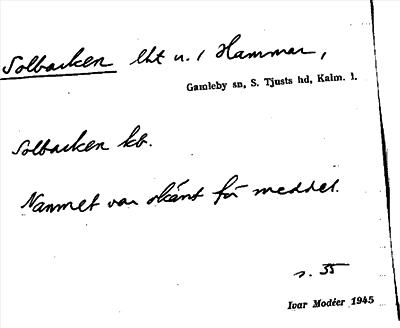 Solbacken lht u. / Hammar,
Gamleby sn, S. Tjusts hd, Kalm. l.
Solbacken kb.
Namnet var okänt för meddel.
s. 35
Ivar Modéer 1945